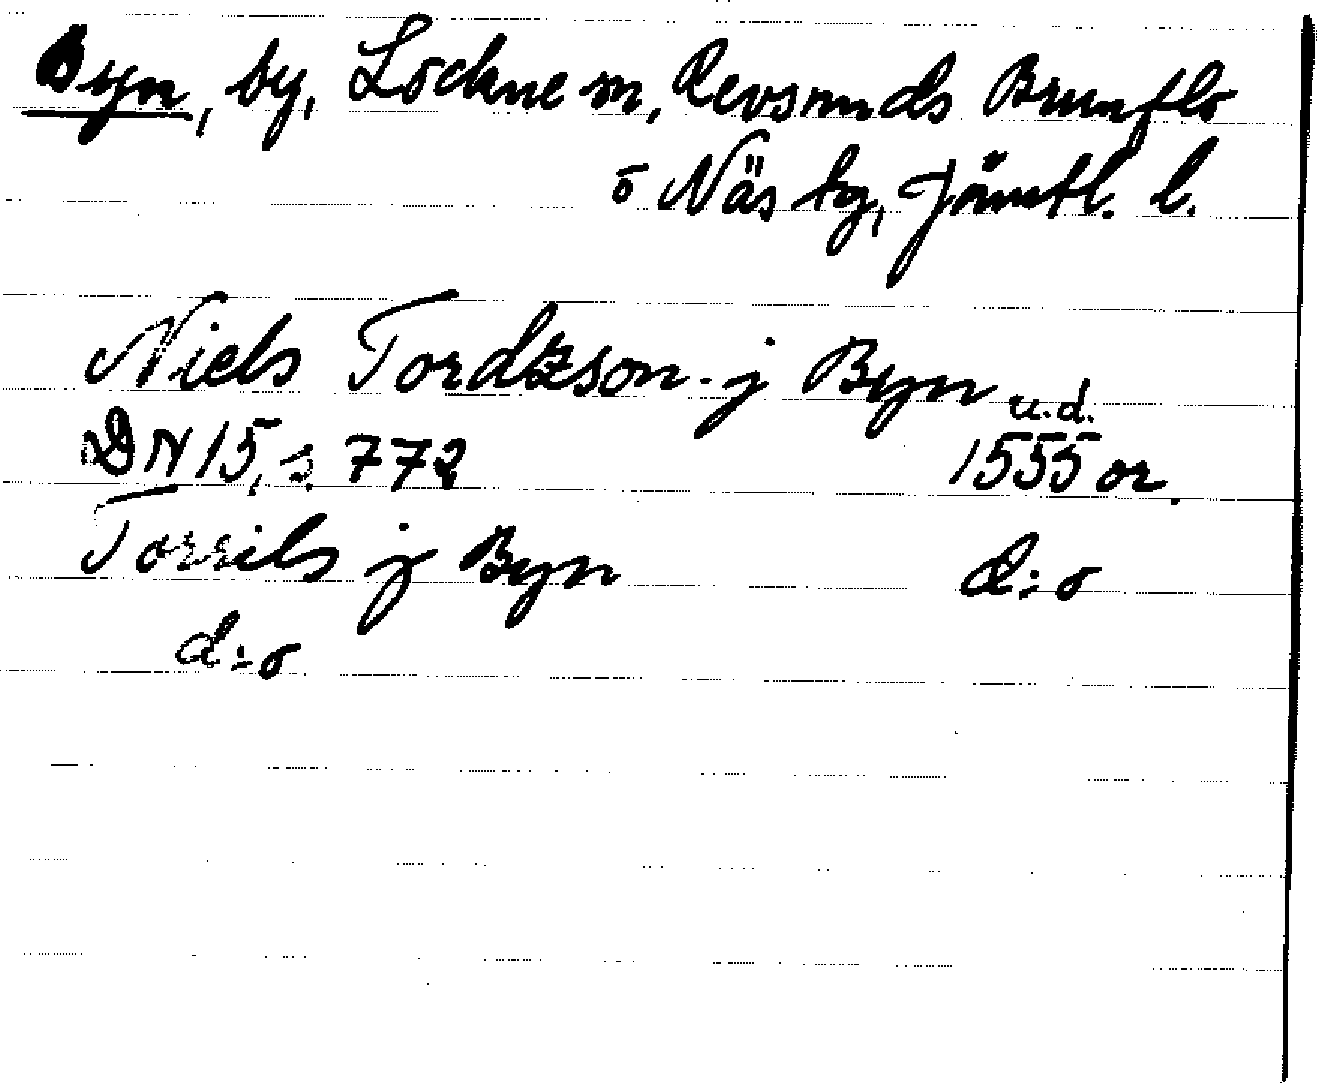 Byn, by, Lockne sn, Revsunds Brunflo
o Näs tg, Jämtl. l.
Niels Tordzson j Byn u.d.
DN 15, s. 772 1555 or.
Torrils j Byn d:o
d:o